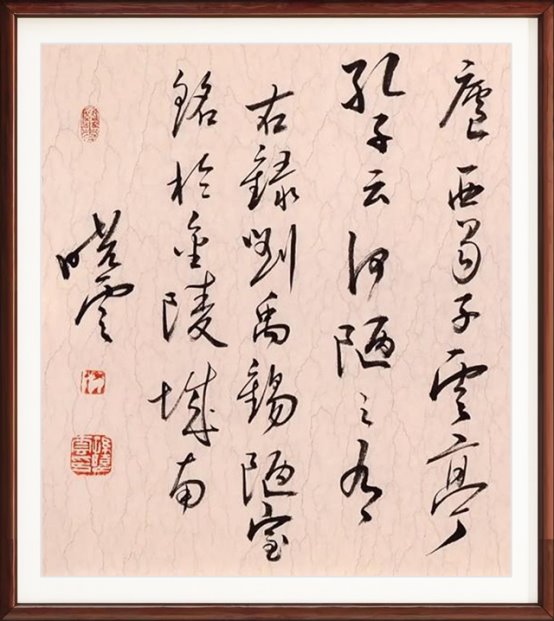 廬西蜀子雲亭
孔子云何陋之有
右録劉禹錫陋室
銘於金陵城南
曉雲